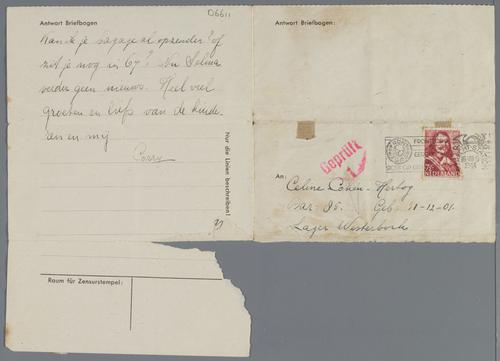 06611
Antwort Briefbogen
Kan ik je bagage al opzenden? of
zit je nog in 67? Van Selma
verder geen nieuws. Heel veel
groeten en liefs van de kinde-
ren en mij
Corry
Nur die Linien beschreiben!
Raum für Zensurstempel:
Antwort Briefbogen:
Geprüft
1
NEDERLAND
An:
Celine Cohen-Hertog
Bar. 95. Geb. 11-12-01.
Lager Westerbork